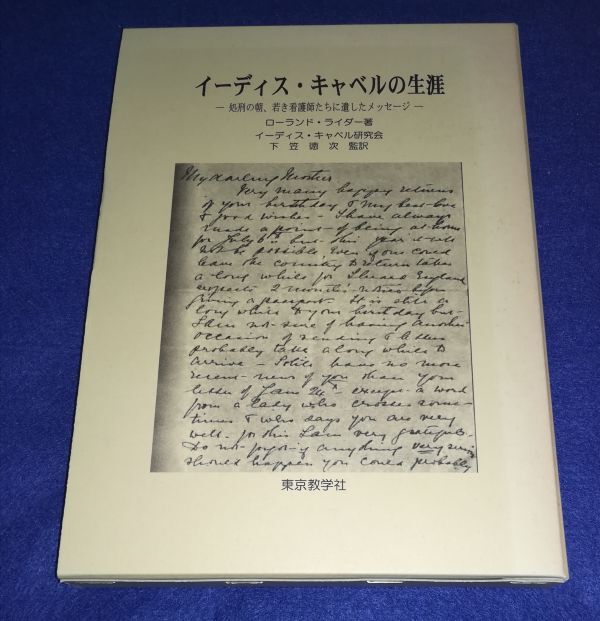 イーディス・キャベルの生涯
― 処刑の朝、若き看護師たちに遺したメッセージ ―
ローランド・ライダー著
イーディス・キャベル研究会
下笠徳次 監訳
My darling Mother
Very many happy returns
of your birthday & my best love
& good wishes - I have always
made a point of being at home
for July 6th but this year it will
not be possible. Even if one could
leave the country & return takes
a long while for I heard England
expects 2 months' notice before
giving a passport. It is still a
long while to your birthday but
I am not sure of having another
occasion of sending & letters
probably take a long while to
arrive - I still have no more
recent news of you than your
letter of Jan 24th except a word
from a lady who crosses some-
times & who says you are very
well. for this I am very grateful.
Do not forget if anything very serious
should happen you could probably
東京教学社